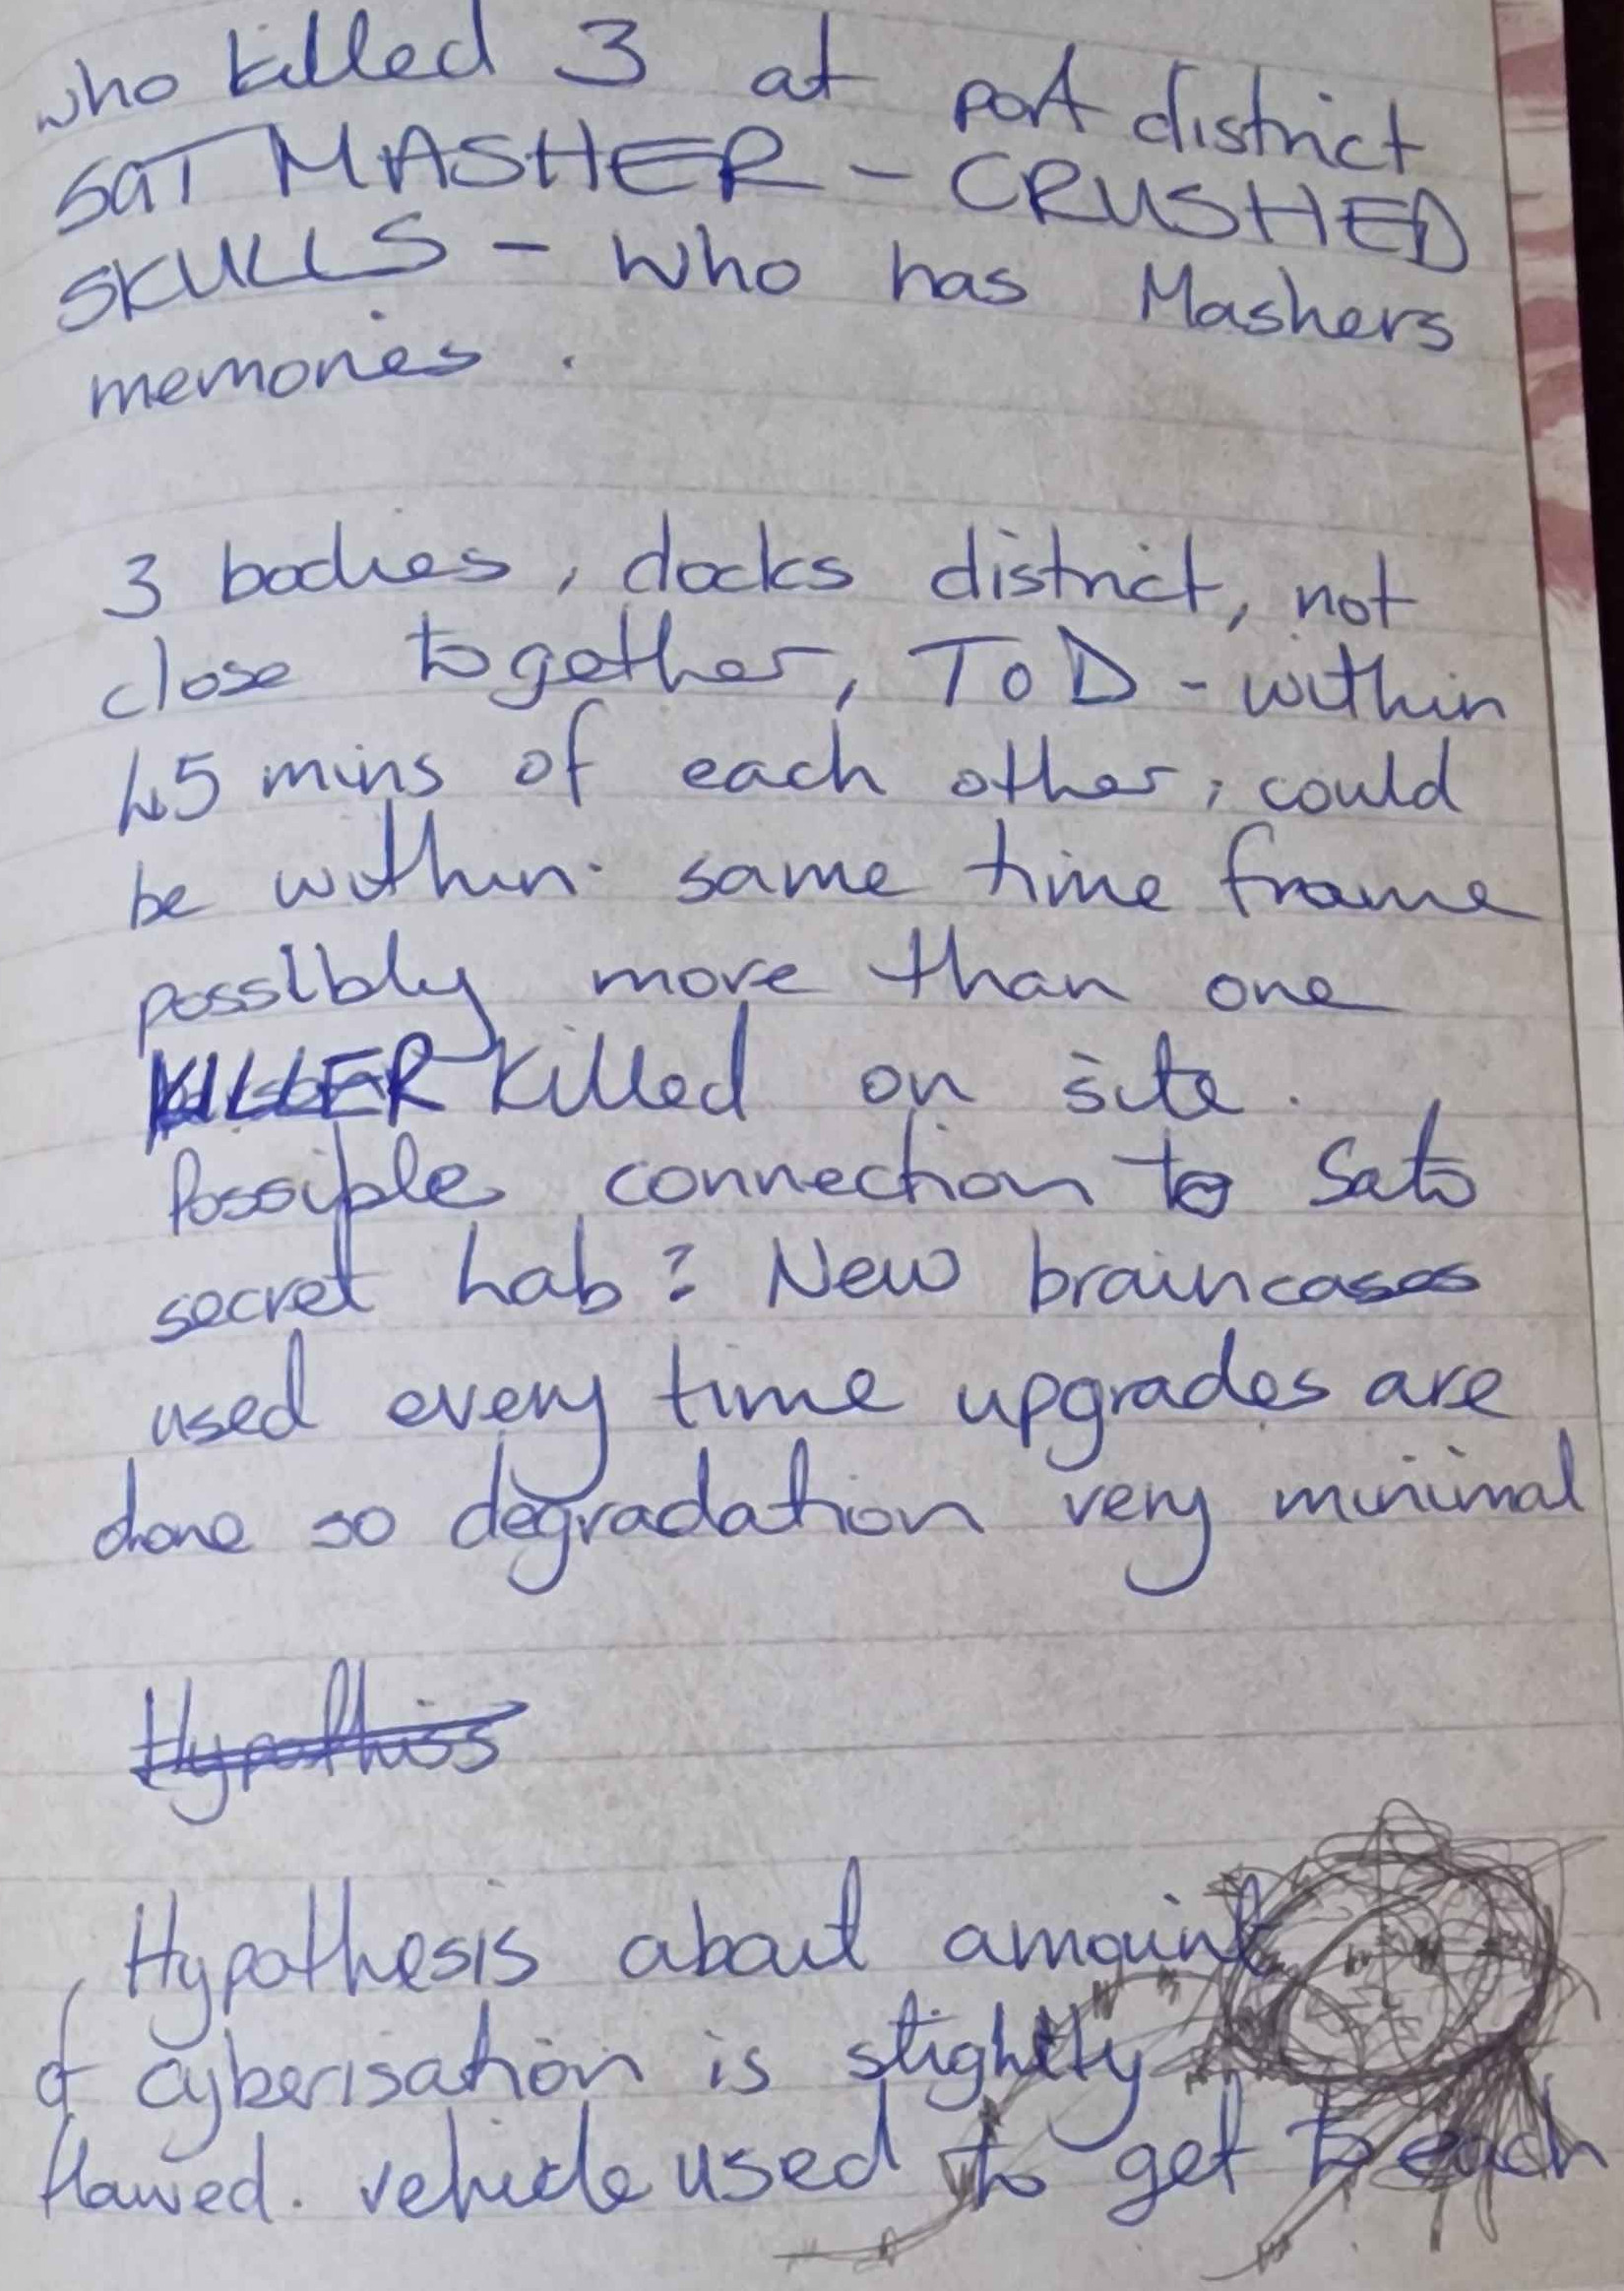 who killed 3 at port district
SaT MASHER - CRUSHED
SKULLS - who has Mashers
memories.
3 bodies, docks district, not
close together, ToD - within
45 mins of each other, could
be within same time frame
possibly more than one
KILLER killed on site.
Possible connection to Sato
secret Lab? New braincases
used every time upgrades are
done so degradation very minimal
Hypothiss
Hypothesis about amount
of cyberisation is slightly
flawed. vehicle used to get to each